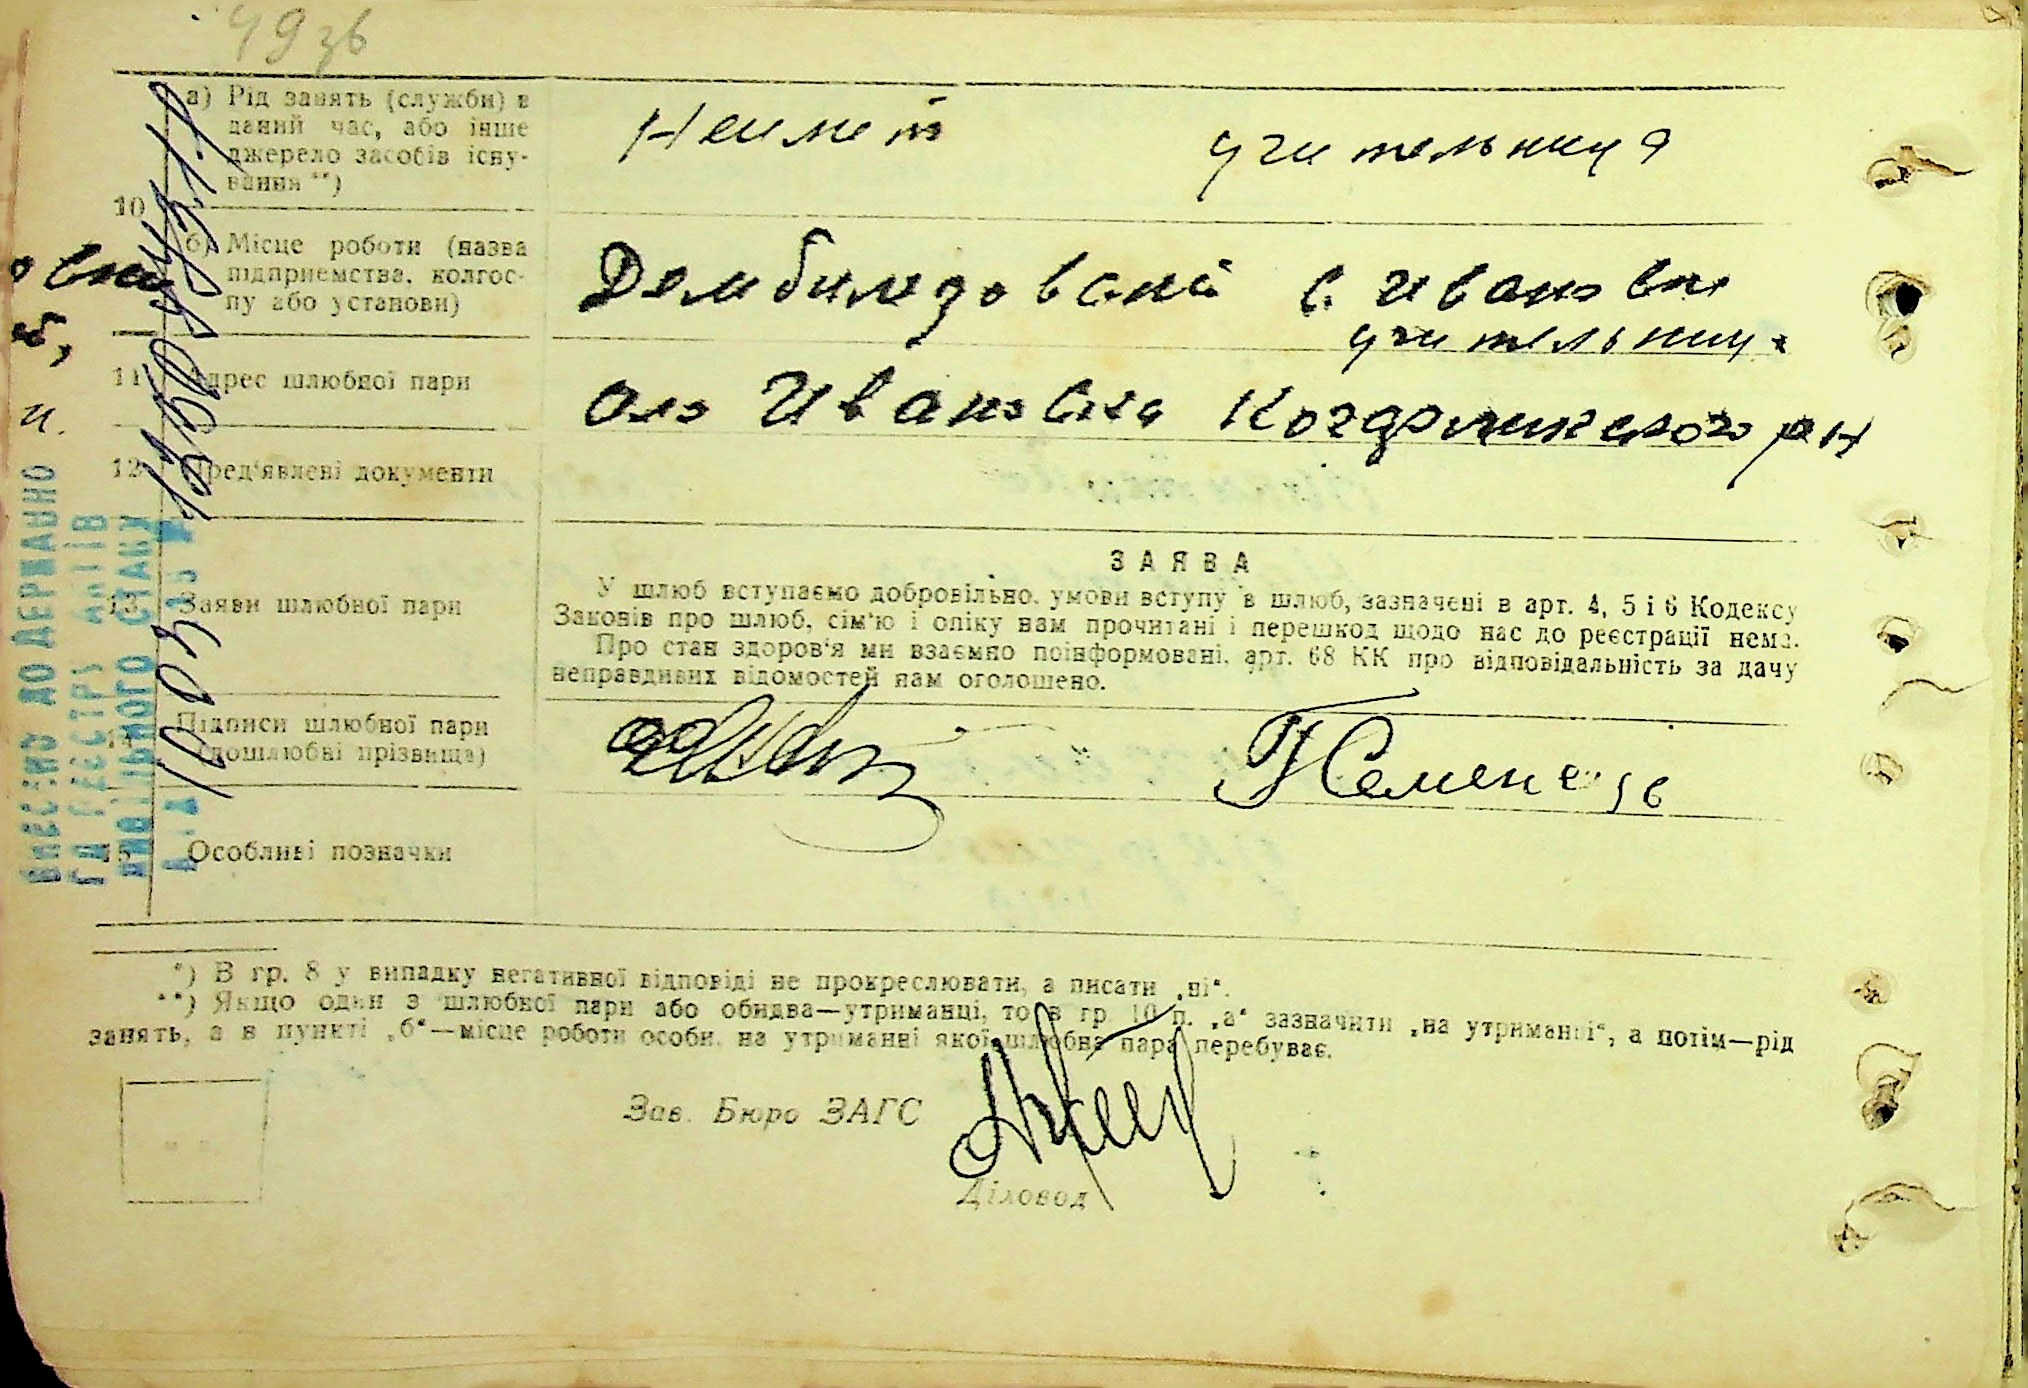 49 зв
а) Рід занять (служби) в
даний час, або інше
джерело засобів існу-
вання **)
Неимет учительница
10
б) Місце роботи (назва
підприємства, колгос-
пу або установи)
Дембилизований с. Ивановки
учительница
11 Адрес шлюбної пари
село Ивановка
12 Пред'явлені документи
13 Заяви шлюбної пари
ЗАЯВА
У шлюб вступаємо добровільно, умови вступу в шлюб, зазначені в арт. 4, 5 і 6 Кодексу
Законів про шлюб, сім'ю і опіку нам прочитані і перешкод щодо нас до реєстрації нема.
Про стан здоров'я ми взаємно поінформовані, арт. 68 КК про відповідальність за дачу
неправдивих відомостей нам оголошено.
14 Підписи шлюбної пари
(дошлюбні прізвища)
15 Особливі позначки
*) В гр. 8 у випадку негативної відповіді не прокреслювати, а писати „ні“.
**) Якщо один з шлюбної пари або обидва—утриманці, то в гр. 10 п. „а“ зазначити „на утриманні“, а потім—рід
занять, а в пункті „б“—місце роботи особи, на утриманні якої шлюбна пара перебуває.
Зав. Бюро ЗАГС
Діловод
ВНЕСЕНО ДО ДЕРЖАВНО
ГО РЕЄСТРУ АКТІВ
ЦИВІЛЬНОГО СТАНУ